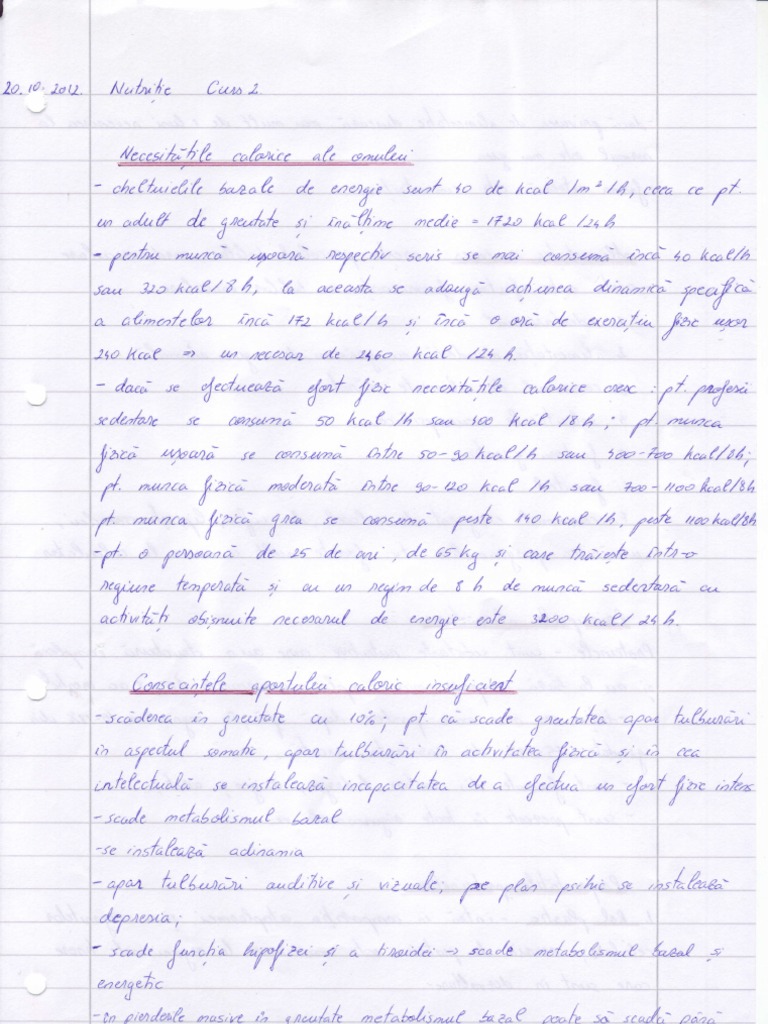 20.10.2012. Nutriție Curs 2
Necesitățile calorice ale omului
- cheltuielile bazale de energie sunt 40 de kcal /m²/h, ceea ce pt.
un adult de greutate și înălțime medie = 1720 kcal /24h
- pentru muncă ușoară respectiv scris se mai consumă încă 40 kcal/h
sau 320 kcal/8h, la aceasta se adaugă acțiunea dinamică specifică
a alimentelor încă 172 kcal/h și încă o oră de exercițiu fizic ușor
240 kcal => un necesar de 2460 kcal /24h.
- dacă se efectuează efort fizic necesitățile calorice cresc : pt. profesii
sedentare se consumă 50 kcal /h sau 400 kcal /8h ; pt. munca
fizică ușoară se consumă între 50-90 kcal/h sau 400-700 kcal/8h;
pt. munca fizică moderată între 90-120 kcal /h sau 700-1100 kcal/8h
pt. munca fizică grea se consumă peste 140 kcal /h, peste 1100 kcal/8h
- pt. o persoană de 25 de ani, de 65 kg și care trăiește într-o
regiune temperată și au un regim de 8 h de muncă sedentară cu
activități obișnuite necesarul de energie este 3200 kcal/24h.
Consecințele aportului caloric insuficient
- scăderea în greutate cu 10%; pt că scade greutatea apar tulburări
în aspectul somatic, apar tulburări în activitatea fizică și în cea
intelectuală se instalează incapacitatea de a efectua un efort fizic intens
- scade metabolismul bazal
- se instalează adinamia
- apar tulburări auditive și vizuale; pe plan psihic se instalează
depresia;
- scade funcția hipofizei și a tiroidei -> scade metabolismul bazal și
energetic
- în pierderile masive în greutate metabolismul bazal poate să scadă până